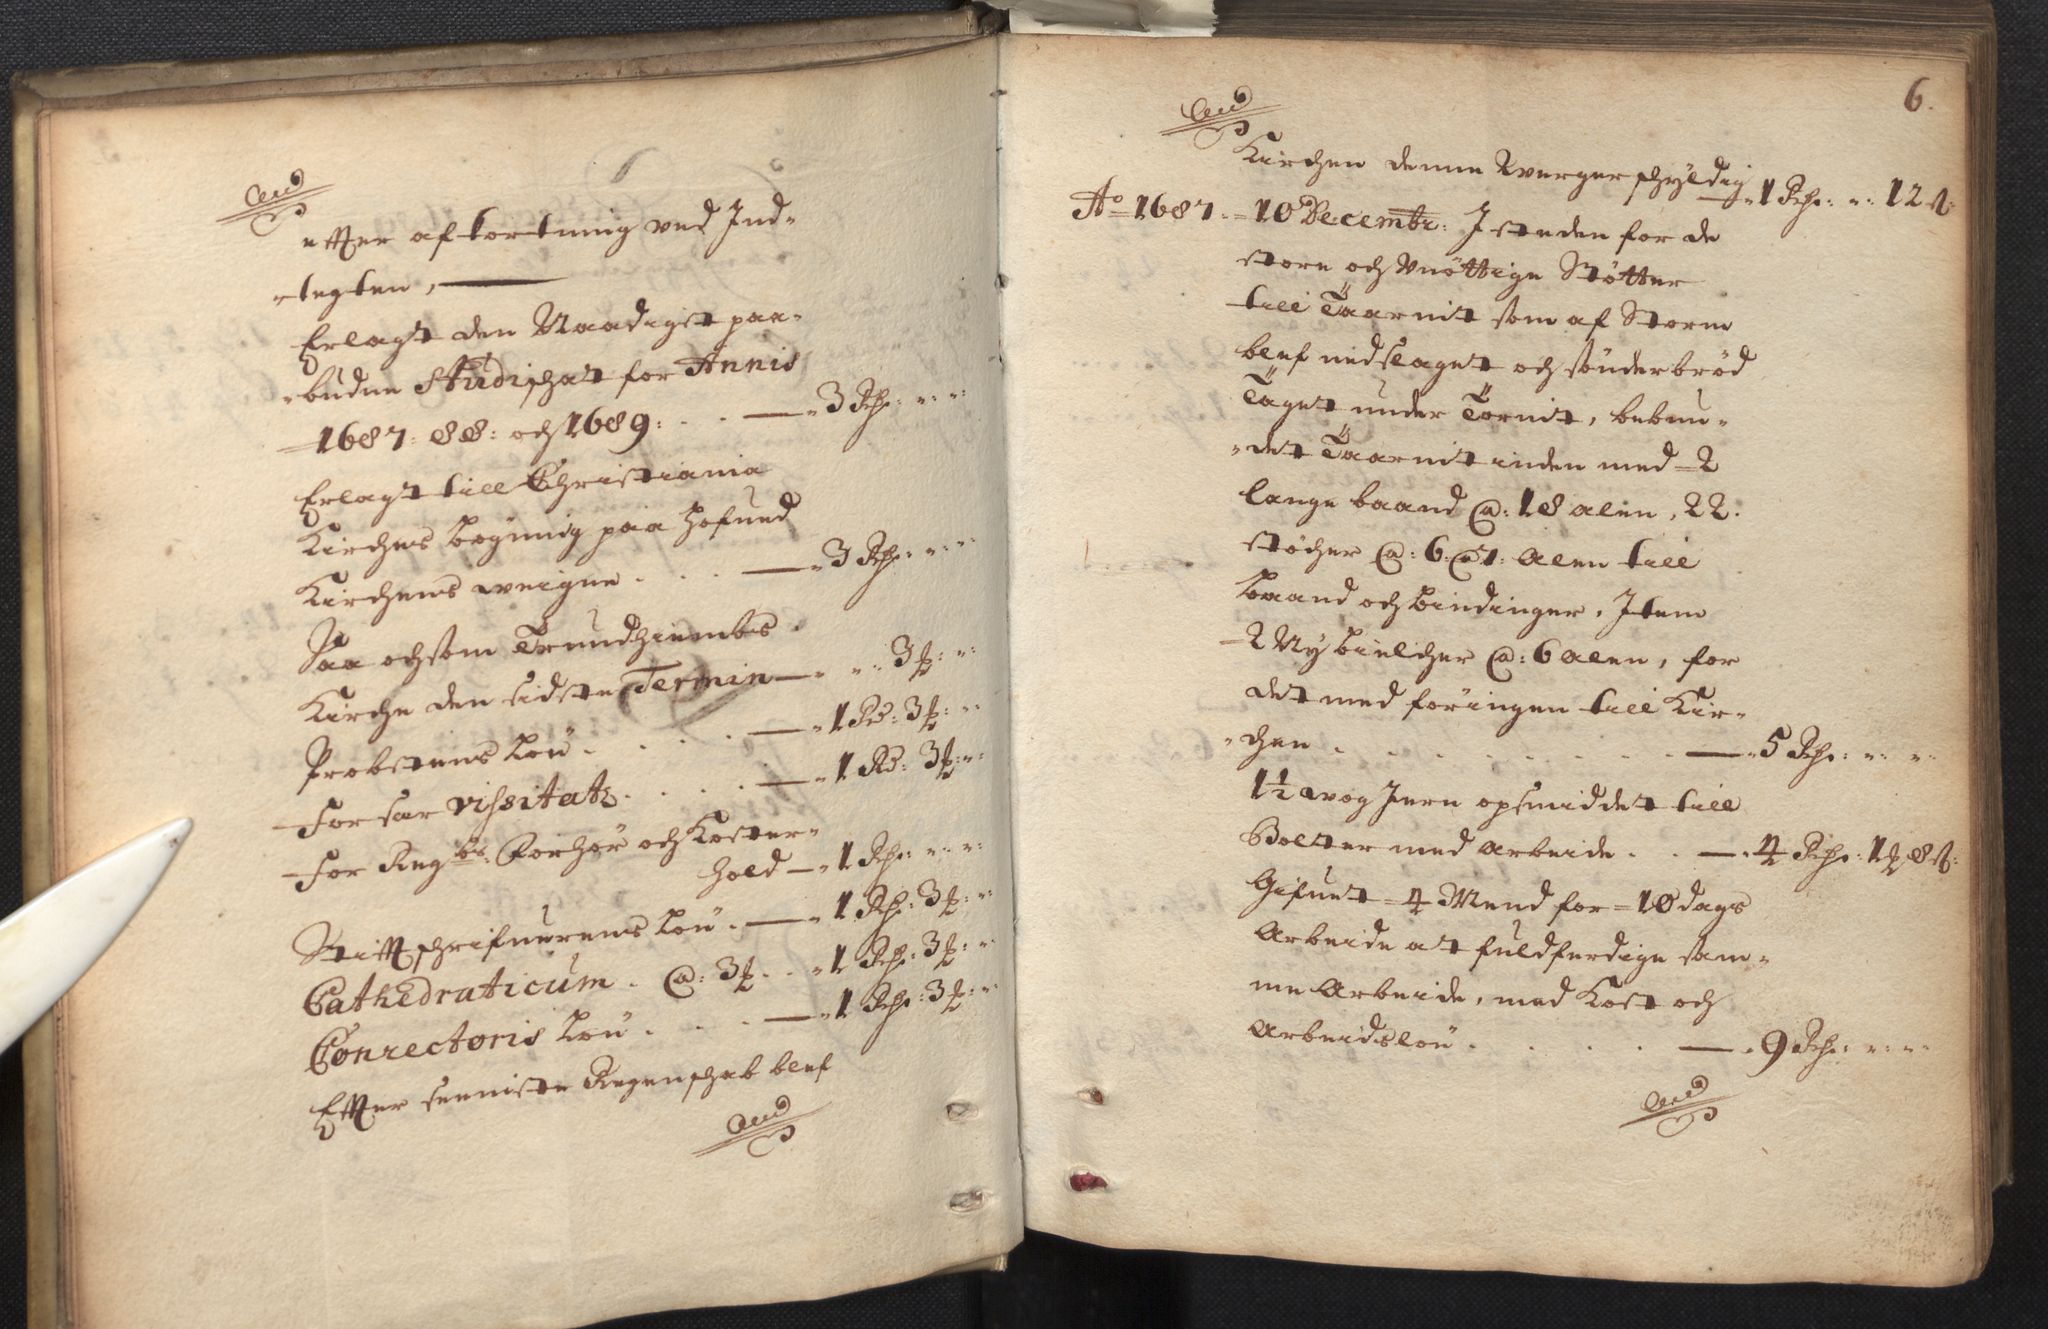 etter aftortning ved Ind-
-tegten,
Erlagt den Naadigst paa-
-budne Studischat for Annis
1687: 88: och 1689: . . — 3 Rdr:
Erlagt till Christiania
Kirches bøgning paa hosfund
Kirchens weigne . . . . — 3 Rdr:
Saa och som Trundhiembs
Kirche den sidste Termin — 3 ß:
Probstens Løn . . . . — 1 Rd: 3 ß:
For sær vissitats . . . . — 1 Rd: 3 ß:
For Regbs: Forhør och Koster-
hold — 1 Rdr:
Stifftschrifuerens Løn . — 1 Rdr: 3 ß:
Cathedraticum . @: 3 ß . . 1 Rdr: 3 ß:
Conrectoris Løn . . . — 1 Rdr: 3 ß:
Efter seeniste Regenschab blef
6.
Kirchen denne Werger schyldig — 1 Rdr: 12 ß:
Ao 1687. 10 Decembr: J steden for de
store och Unöttige Stötter
till Taarnit som af Storm
blef nedslaget och sönderbröd
Taget under Tornit, bebun-
-det Taarnit inden med 2
lange baand @: 18 alen, 22.
Stöcher @: 6. @ 7: alen till
baand och bindinger, Jtem
2 Ny bielcher @: 6 alen, for
det med föringen till Kir-
-chen . . . . . . . . — 5 Rdr:
1½ wog Jern opsmiddet till
Bolter med arbeide . . — 4 Rdr: 1 ß 8 ß:
Gifuet 4 Mend for 10 dags
Arbeide at fuldferdige sam-
me Arbeide, med Kost och
Arbeidsløn . . . . . — 9 Rdr: